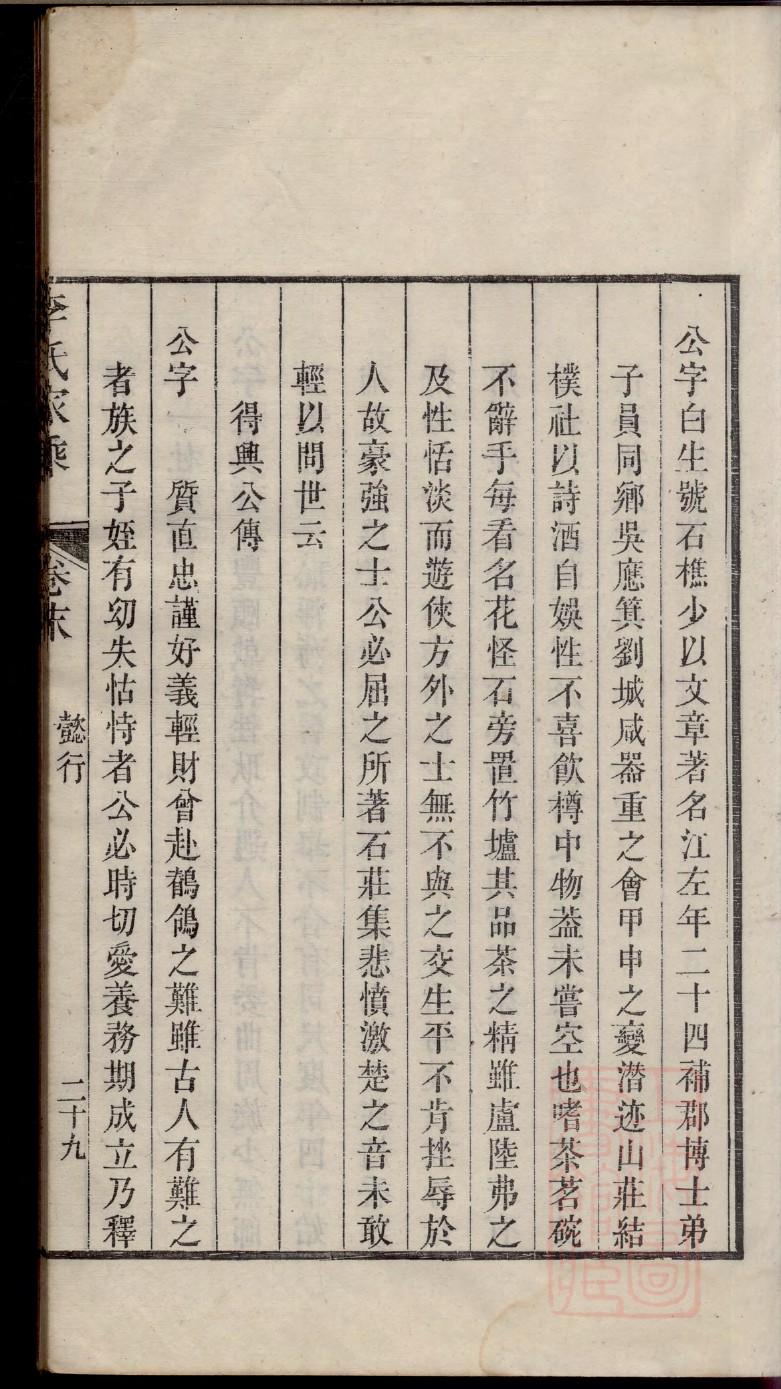 公字白生號石樵少以文章著名江左年二十四補郡博士弟
子員同鄉吳應箕劉城咸器重之會甲申之變潛迹山莊結
樸社以詩酒自娛性不喜飲樽中物葢未嘗空也嗜茶茗碗
不辭手每看名花怪石旁置竹壚其品茶之精雖盧陸弗之
及性恬淡而遊俠方外之士無不與之交生平不肯挫辱於
人故豪強之士公必屈之所著石莊集悲憤激楚之音未敢
輕以問世云
得興公傳
公字　　質直忠謹好義輕財曾赴鶺鴒之難雖古人有難之
者族之子姪有幼失怙恃者公必時切愛養務期成立乃釋
李氏家乘　卷末　懿行　二十九